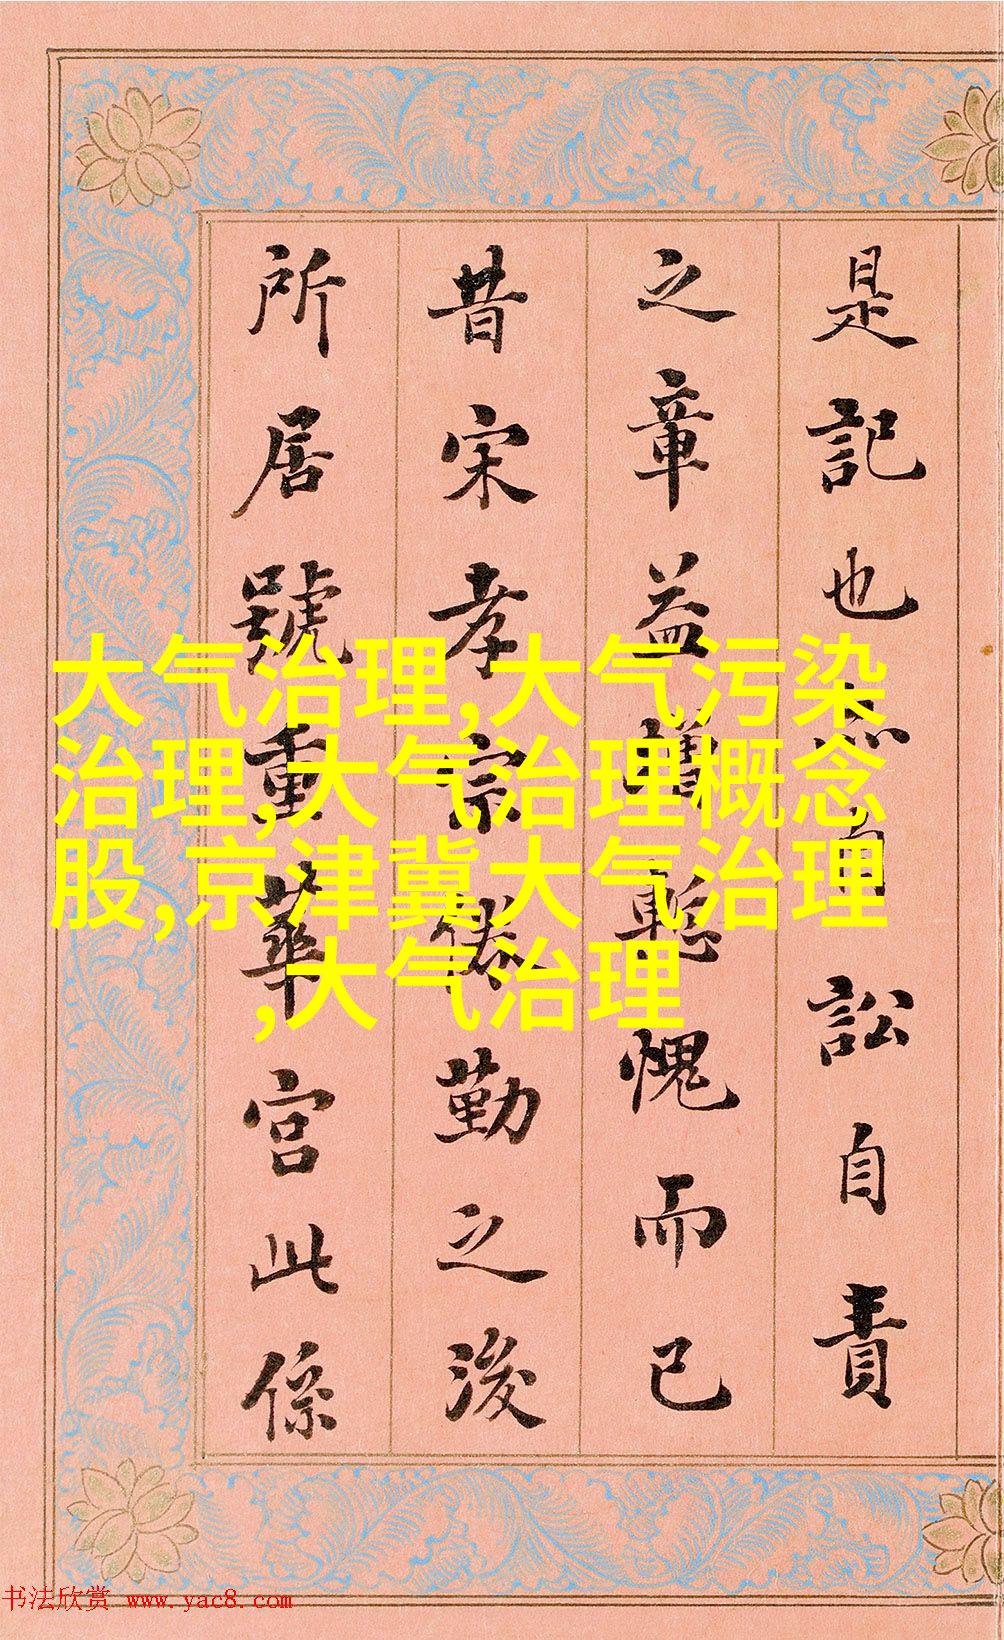 是記也亦自訟自責
之章益增慙愧而已
昔宋孝宗倦勤之後
所居號重華宮此係
大气治理,大气污染
治理,大气治理概念
股,京津冀大气治理
,大气治理
书法欣赏 www.yac8.com